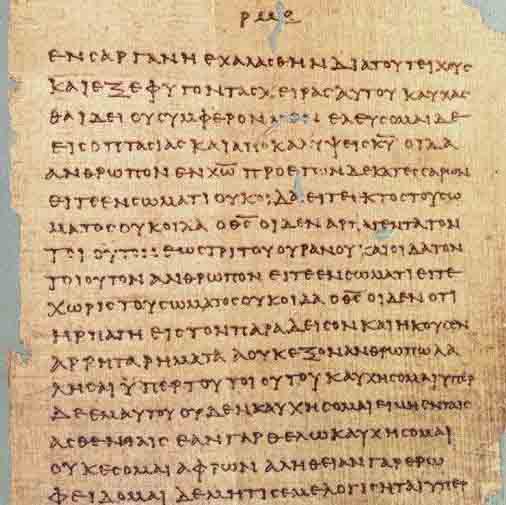 ΕΝϹΑΡΓΑΝΗΕΧΑΛΑϹΘΗΝΔΙΑΤΟΥΤΕΙΧΟΥϹ
ΚΑΙΕΞΕΦΥΓΟΝΤΑϹΧΕΙΡΑϹΑΥΤΟΥΚΑΥΧΑϹ
ΘΑΙΔΕΙΟΥϹΥΜΦΕΡΟΝ ΕΛΕΥϹΟΜΑΙΔΕ
ΕΙϹΟΠΤΑϹΙΑϹΚΑΙΑΠΟΚΑΛΥΨΕΙϹΚ̅Υ̅ΟΙΔΑ
ΑΝΘΡΩΠΟΝΕΝΧ̅Ω̅ΠΡΟΕΤΩΝΔΕΚΑΤΕϹϹΑΡΩΝ
ΕΙΤΕΕΝϹΩΜΑΤΙΟΥΚΟΙΔΑΕΙΤΕΕΚΤΟϹΤΟΥϹΩ
ΜΑΤΟϹΟΥΚΟΙΔΑΟΘ̅Ϲ̅ΟΙΔΕΝΑΡΠΑΓΕΝΤΑΤΟΝ
ΤΟΙΟΥΤΟΝΕΩϹΤΡΙΤΟΥΟΥΡΑΝΟΥΚΑΙΟΙΔΑΤΟΝ
ΤΟΙΟΥΤΟΝΑΝΘΡΩΠΟΝΕΙΤΕΕΝϹΩΜΑΤΙΕΙΤΕ
ΧΩΡΙϹΤΟΥϹΩΜΑΤΟϹΟΥΚΟΙΔΑΟΘ̅Ϲ̅ΟΙΔΕΝΟΤΙ
ΗΡΠΑΓΗΕΙϹΤΟΝΠΑΡΑΔΕΙϹΟΝΚΑΙΗΚΟΥϹΕΝ
ΑΡΡΗΤΑΡΗΜΑΤΑΑΟΥΚΕΞΟΝΑΝΘΡΩΠΩΛΑ
ΛΗϹΑΙΫΠΕΡΤΟΥΤΟΙΟΥΤΟΥΚΑΥΧΗϹΟΜΑΙΫΠΕΡ
ΔΕΕΜΑΥΤΟΥΟΥΔΕΝΚΑΥΧΗϹΟΜΑΙΕΙΜΗΕΝΤΑΙϹ
ΑϹΘΕΝΕΙΑΙϹΕΑΝΓΑΡΘΕΛΩΚΑΥΧΗϹΟΜΑΙ
ΟΥΚΕϹΟΜΑΙΑΦΡΩΝΑΛΗΘΕΙΑΝΓΑΡΕΡΩ
ΦΕΙΔΟΜΑΙΔΕΜΗΤΙϹΕΜΕΛΟΓΙϹΗΤΑΙΫΠΕΡ